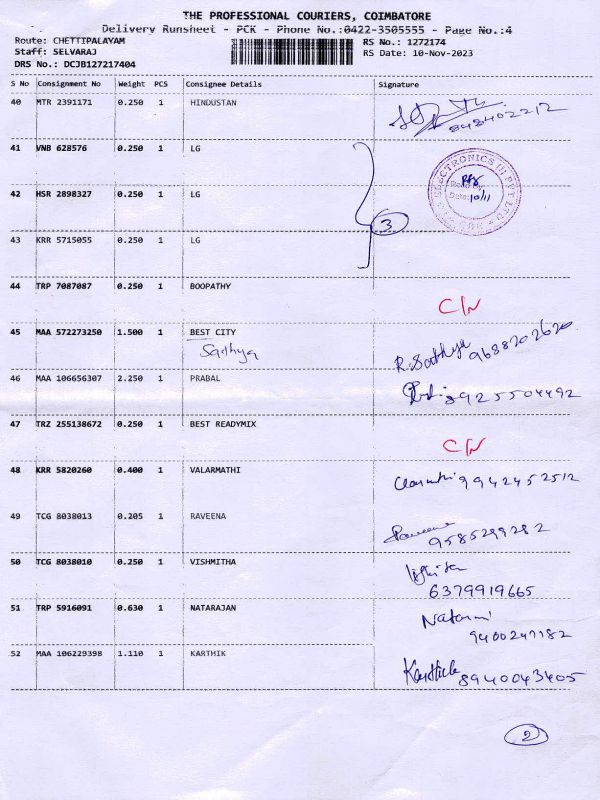 THE PROFESSIONAL COURIERS, COIMBATORE
Delivery Runsheet - PCK - Phone No.:0422-3505555 - Page No.:4
Route: CHETTIPALAYAM RS No.: 1272174
Staff: SELVARAJ RS Date: 10-Nov-2023
DRS No.: DCJB127217404
S No Consignment No Weight PCS Consignee Details Signature
40 MTR 2391171 0.250 1 HINDUSTAN
41 VNB 628576 0.250 1 LG
42 HSR 2898327 0.250 1 LG
3
43 KRR 5715055 0.250 1 LG
44 TRP 7087087 0.250 1 BOOPATHY
C/N
45 MAA 572273250 1.500 1 BEST CITY
Sathya R. Sathya 9688202620
46 MAA 106656307 2.250 1 PRABAL 925504492
47 TRZ 255138672 0.250 1 BEST READYMIX
C/N
48 KRR 5820260 0.400 1 VALARMATHI 9942452512
49 TCG 8038013 0.205 1 RAVEENA
Raveena 9585299282
50 TCG 8038010 0.250 1 VISHMITHA
6379919665
51 TRP 5916091 0.630 1 NATARAJAN
9400247182
52 MAA 106229398 1.110 1 KARTHIK
Karthick 8940043405
2